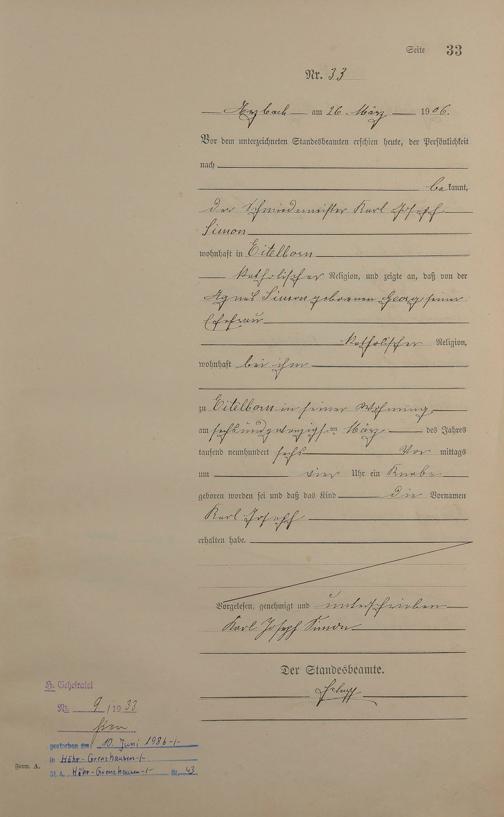 Seite 33
Nr. 33
Arzbach am 26 März 1906.
Vor dem unterzeichneten Standesbeamten erschien heute, der Persönlichkeit
nach
bekannt,
der Schmiedemeister Karl Joseph
Simon
wohnhaft in Eitelborn
katholischer Religion, und zeigte an, daß von der
Agnes Simon geborenen Georg seiner
Ehefrau
katholischer Religion,
wohnhaft bei ihm
zu Eitelborn in seiner Wohnung
am sechsundzwanzigsten März des Jahres
tausend neunhundert sechs Vor mittags
um vier Uhr ein Knabe
geboren worden sei und daß das Kind die Vornamen
Karl Joseph
erhalten habe.
Vorgelesen, genehmigt und unterschrieben
Karl Joseph Simon
Der Standesbeamte.
H. Geheiratet
Nr. 9 / 1933
gestorben am 10. Juni 1986
in Höhr-Grenzhausen
St. A. Höhr-Grenzhausen Nr. 43
Form. A.